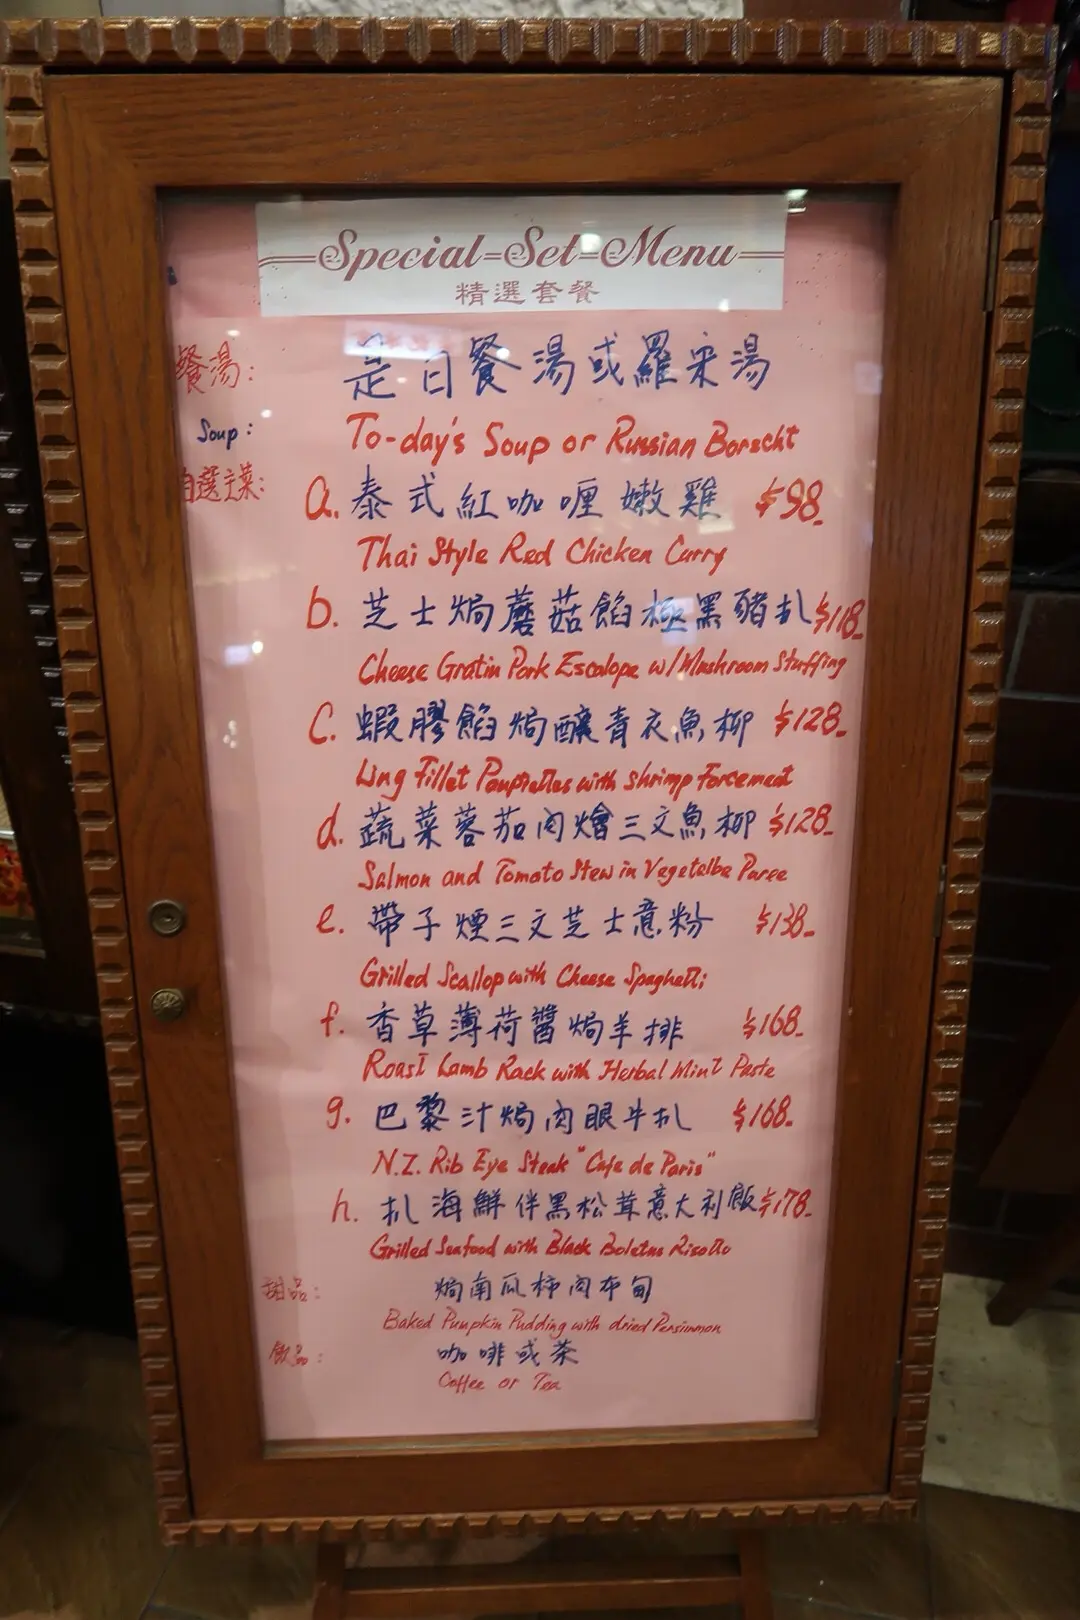 Special Set Menu
精選套餐
餐湯: 是日餐湯或羅宋湯
Soup: To-day's Soup or Russian Borscht
自選主菜:
a. 泰式紅咖喱嫩雞 $98
Thai Style Red Chicken Curry
b. 芝士焗蘑菇餡極黑豬扒 $118
Cheese Gratin Pork Escalope w/Mushroom Stuffing
c. 蝦膠餡焗釀青衣魚柳 $128
Ling Fillet Paupiettes with shrimp Forcement
d. 蔬菜蓉茄肉燴三文魚柳 $128
Salmon and Tomato Stew in Vegetalbe Puree
e. 帶子煙三文芝士意粉 $138
Grilled Scallop with Cheese Spaghetti
f. 香草薄荷醬焗羊排 $168
Roast Lamb Rack with Herbal Mint Paste
g. 巴黎汁焗肉眼牛扒 $168
N.Z. Rib Eye Steak "Cafe de Paris"
h. 扒海鮮伴黑松茸意大利飯 $178
Grilled Seafood with Black Boletus Risotto
甜品: 焗南瓜柿肉布甸
Baked Pumpkin Pudding with dried Persimmon
飲品: 咖啡或茶
Coffee or Tea